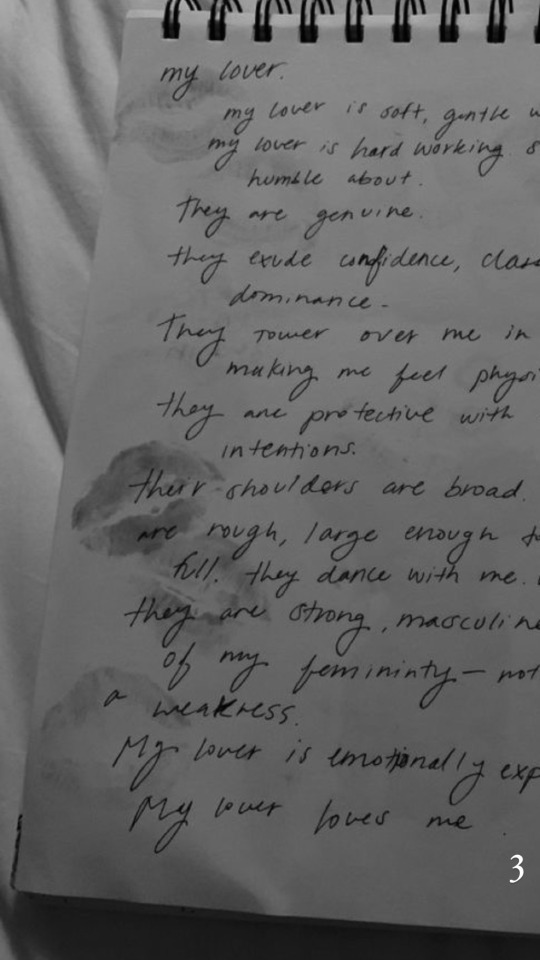 my lover.
my lover is soft, gentle
my lover is hard working
humble about.
They are genuine.
they exude confidence,
dominance.
They tower over me in
making me feel
they are protective with
intentions.
their shoulders are broad.
are rough, large enough
full. they dance with me.
they are strong, masculine
of my femininty — not
a weakness.
My lover is emotionally
My lover loves me.
3